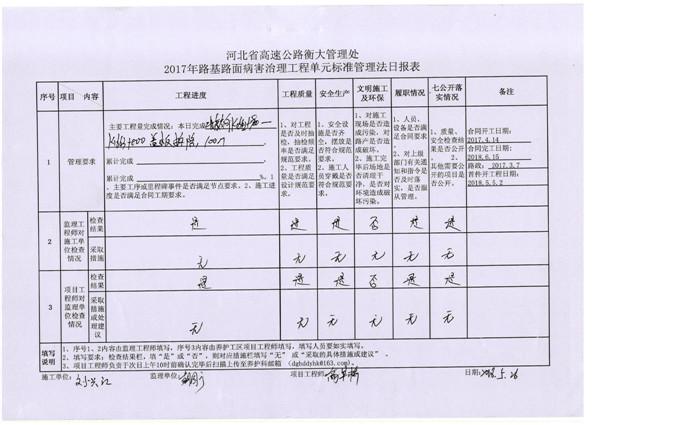 河北省高速公路衡大管理处
2017年路基路面病害治理工程单元标准管理法日报表
序号 项目 内容 工程进度 工程质量 安全生产 文明施工及环保 履职情况 七公开落实情况 备注
1 管理要求
主要工程量完成情况：本日完成
累计完成
累计完成 %。1
、主要工序或里程碑事件是否满足节点要求。2、施工进
度是否满足合同工期要求。
1、对工程是否及时抽检，抽检频率是否满足规范要求。
2、工程质量是否满足设计规范要求。
1、安全设施是否齐全，摆放是否符合规范要求。
2、施工人员穿戴是否符合规范要求。
1、对施工现场是否造成污染，对路产是否造成破坏。
2、施工完毕后场地是否清理干净，是否对环境造成破坏污染。
1、人员、设备是否满足合同要求。
2、对上级部门有关通知和指令是否及时落实，是否服从管理。
1、质量、安全检查结果是否公开。2、其他需要公开的项目是否公开。
合同开工日期：
2017.4.14
合同完工日期：
2018.6.15
路政：2017.3.7
首件开工日期：
2018.5.5.2
2 监理工程师对施工单位检查情况
检查结果 是 是 是 否 是 是
采取措施 无 无 无 无 无 无
3 项目工程师对监理单位检查情况
检查结果 是 是 是 否 是 是
采取措施或处理建议 无 无 无 无 无 无
填写说明
1、序号1、2内容由监理工程师填写，序号3内容由养护工区项目工程师填写，填写人员要如实填写。
2、填写要求：检查结果栏，填“是”或“否”，则对应措施栏填写“无”或“采取的具体措施或建议”。
3、项目工程师负责于次日上午10时前确认完毕后扫描上传至养护科邮箱（dghddyhk@163.com）。
施工单位： 监理单位： 项目工程师： 日期：